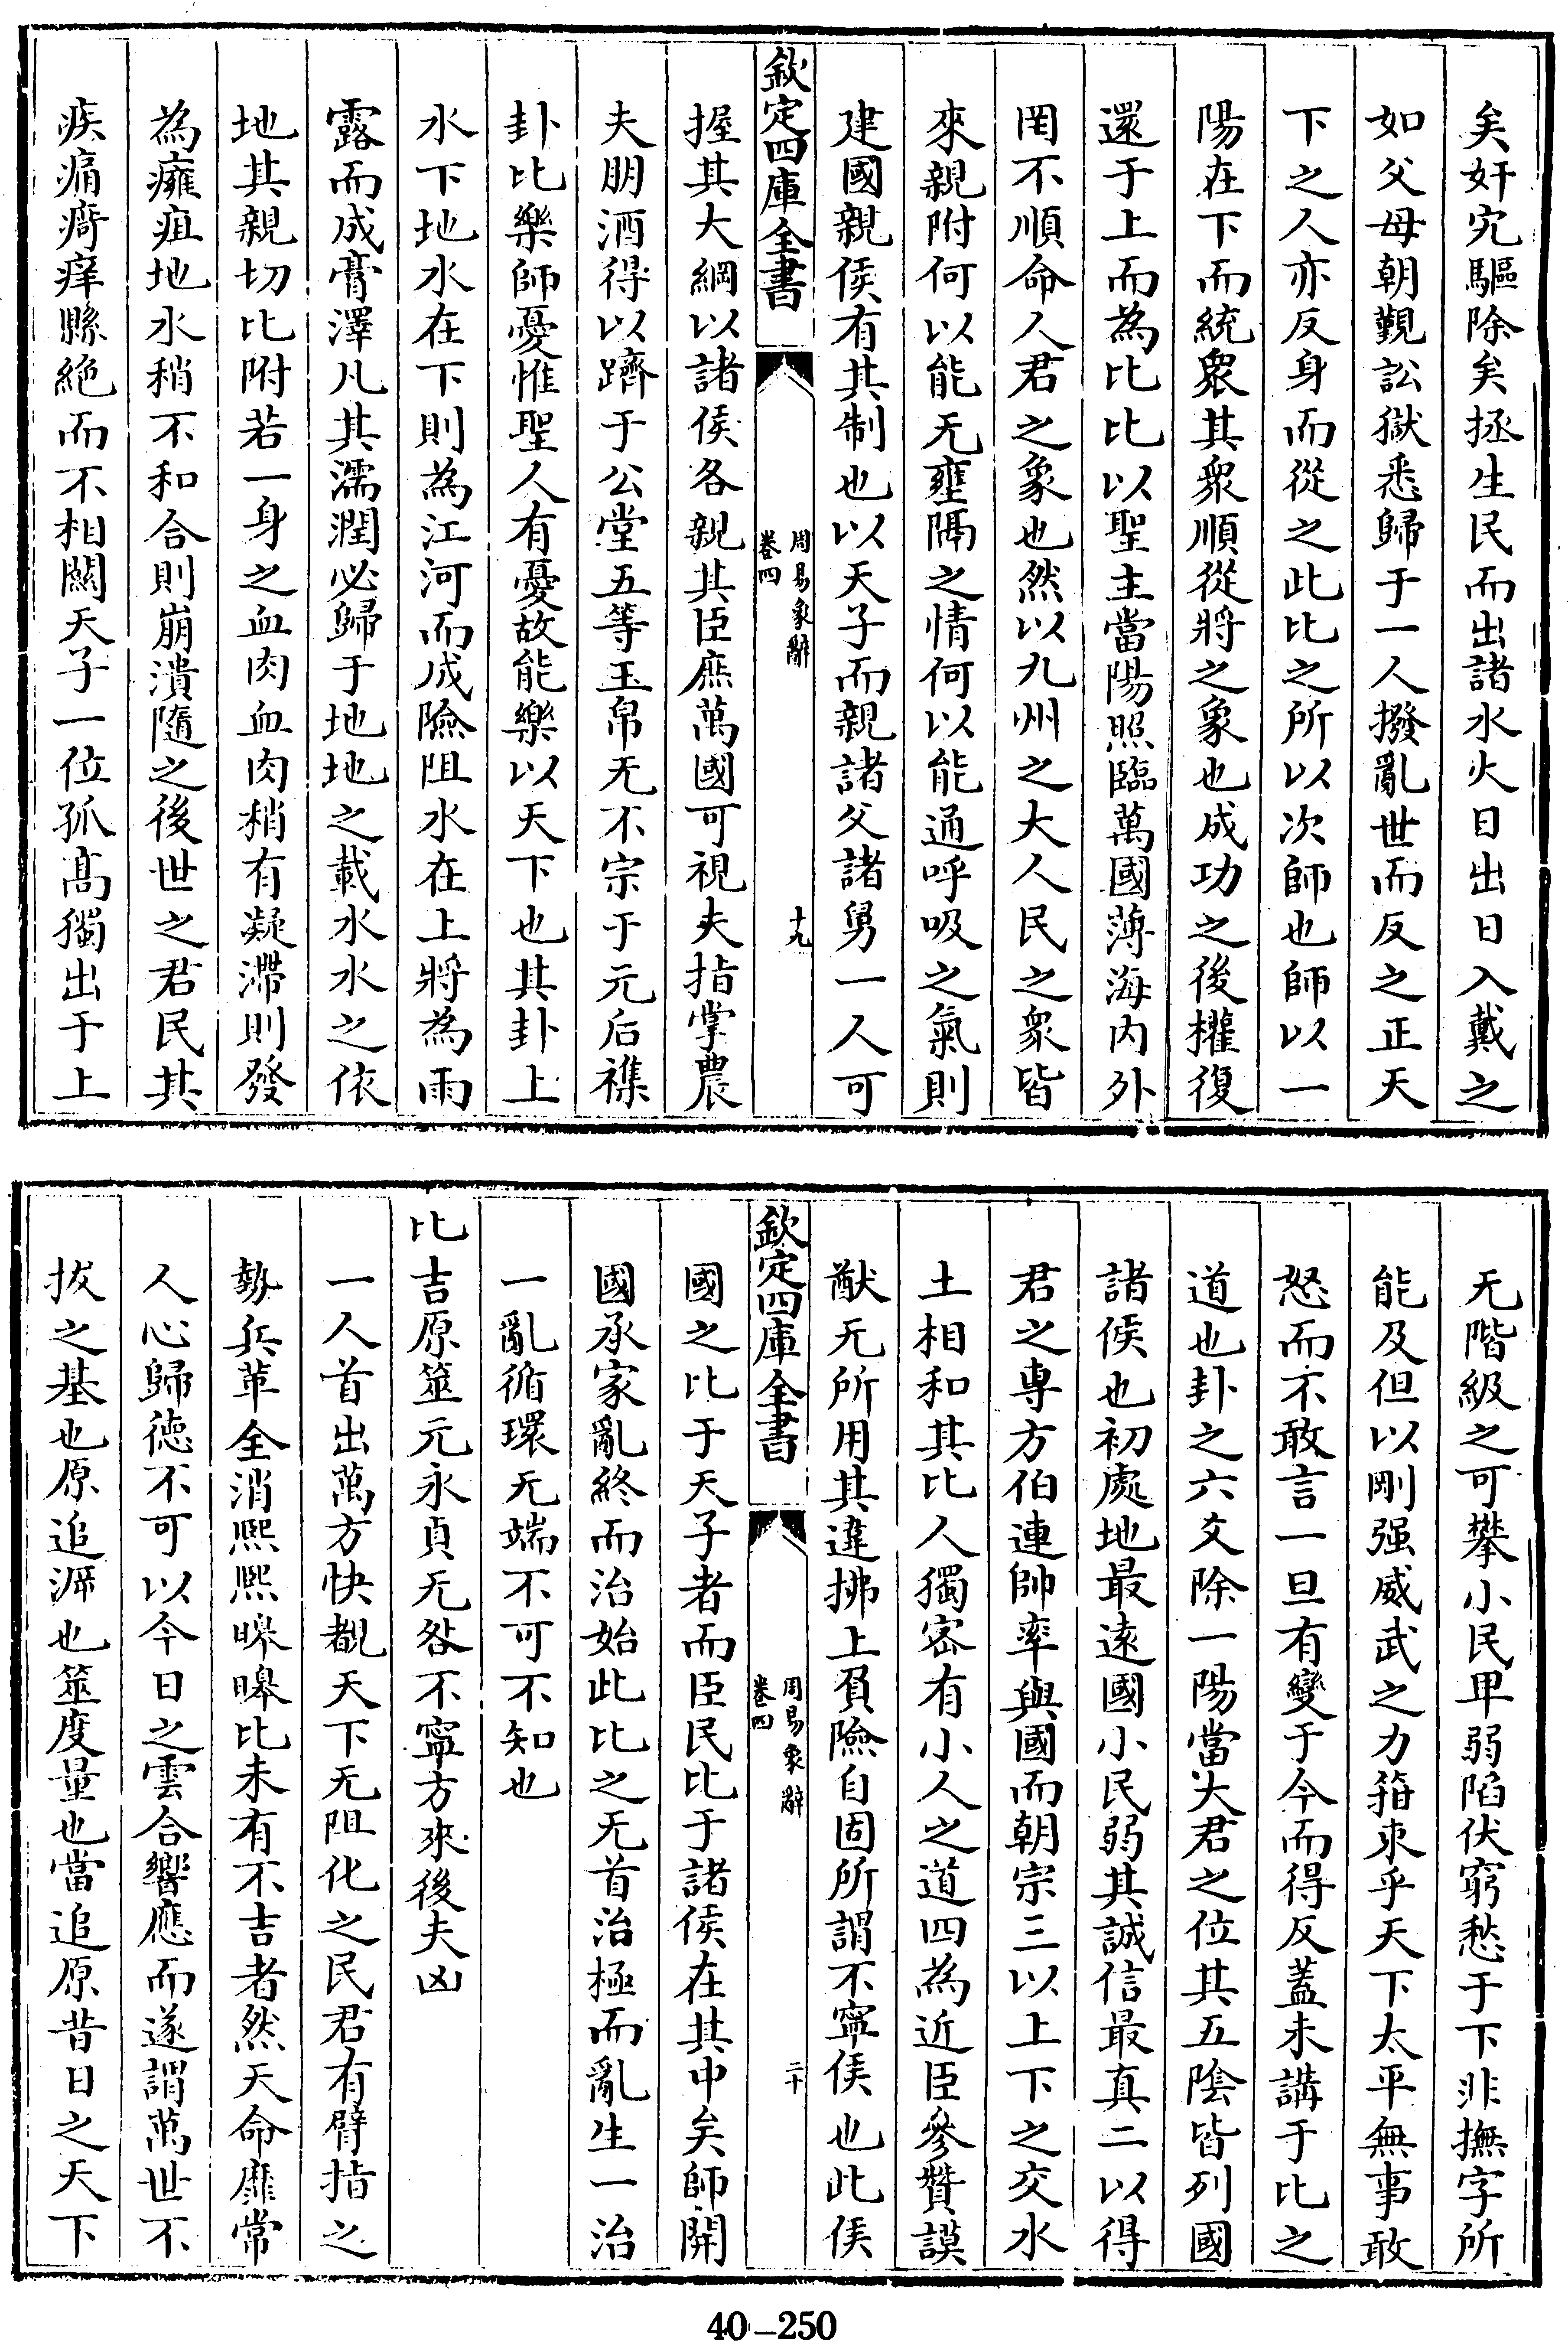 矣奸宄驅除矣拯生民而出諸水火日出日入戴之
如父母朝覲訟獄悉歸于一人撥亂世而反之正天
下之人亦反身而從之此比之所以次師也師以一
陽在下而統衆其衆順從將之象也成功之後權復
還于上而為比比以聖主當陽照臨萬國薄海内外
罔不順命人君之象也然以九州之大人民之衆皆
來親附何以能无壅隔之情何以能通呼吸之氣則
建國親侯有其制也以天子而親諸父諸舅一人可
欽定四庫全書
周易象辭
卷四
十九
握其大綱以諸侯各親其臣庶萬國可視夫指掌農
夫朋酒得以躋于公堂五等玉帛无不宗于元后襍
卦比樂師憂惟聖人有憂故能樂以天下也其卦上
水下地水在下則為江河而成險阻水在上將為雨
露而成膏澤凡其濡潤必歸于地地之載水水之依
地其親切比附若一身之血肉血肉稍有凝滯則發
為癰疽地水稍不和合則崩潰隨之後世之君民其
疾痛疴痒縣絶而不相關天子一位孤髙獨出于上
无階級之可攀小民甲弱陷伏窮愁于下非撫字所
能及但以剛强威武之力箝束乎天下太平無事敢
怒而不敢言一旦有變于今而得反蓋未講于比之
道也卦之六爻除一陽當大君之位其五陰皆列國
諸侯也初處地最逺國小民弱其誠信最真二以得
君之専方伯連帥率與國而朝宗三以上下之交水
土相和其比人獨宻有小人之道四為近臣參贊謨
猷无所用其違拂上負險自固所謂不寧侯也此侯
欽定四庫全書
周易象辭
卷四
二十
國之比于天子者而臣民比于諸侯在其中矣師開
國承家亂終而治始此比之无首治極而亂生一治
一亂循環无端不可不知也
比吉原筮元永貞无咎不寧方來後夫凶
一人首出萬方快覩天下无阻化之民君有臂指之
勢兵革全消熙熙皥皥比未有不吉者然天命靡常
人心歸徳不可以今日之雲合響應而遂謂萬世不
拔之基也原追遡也筮度量也當追原昔日之天下
40-250